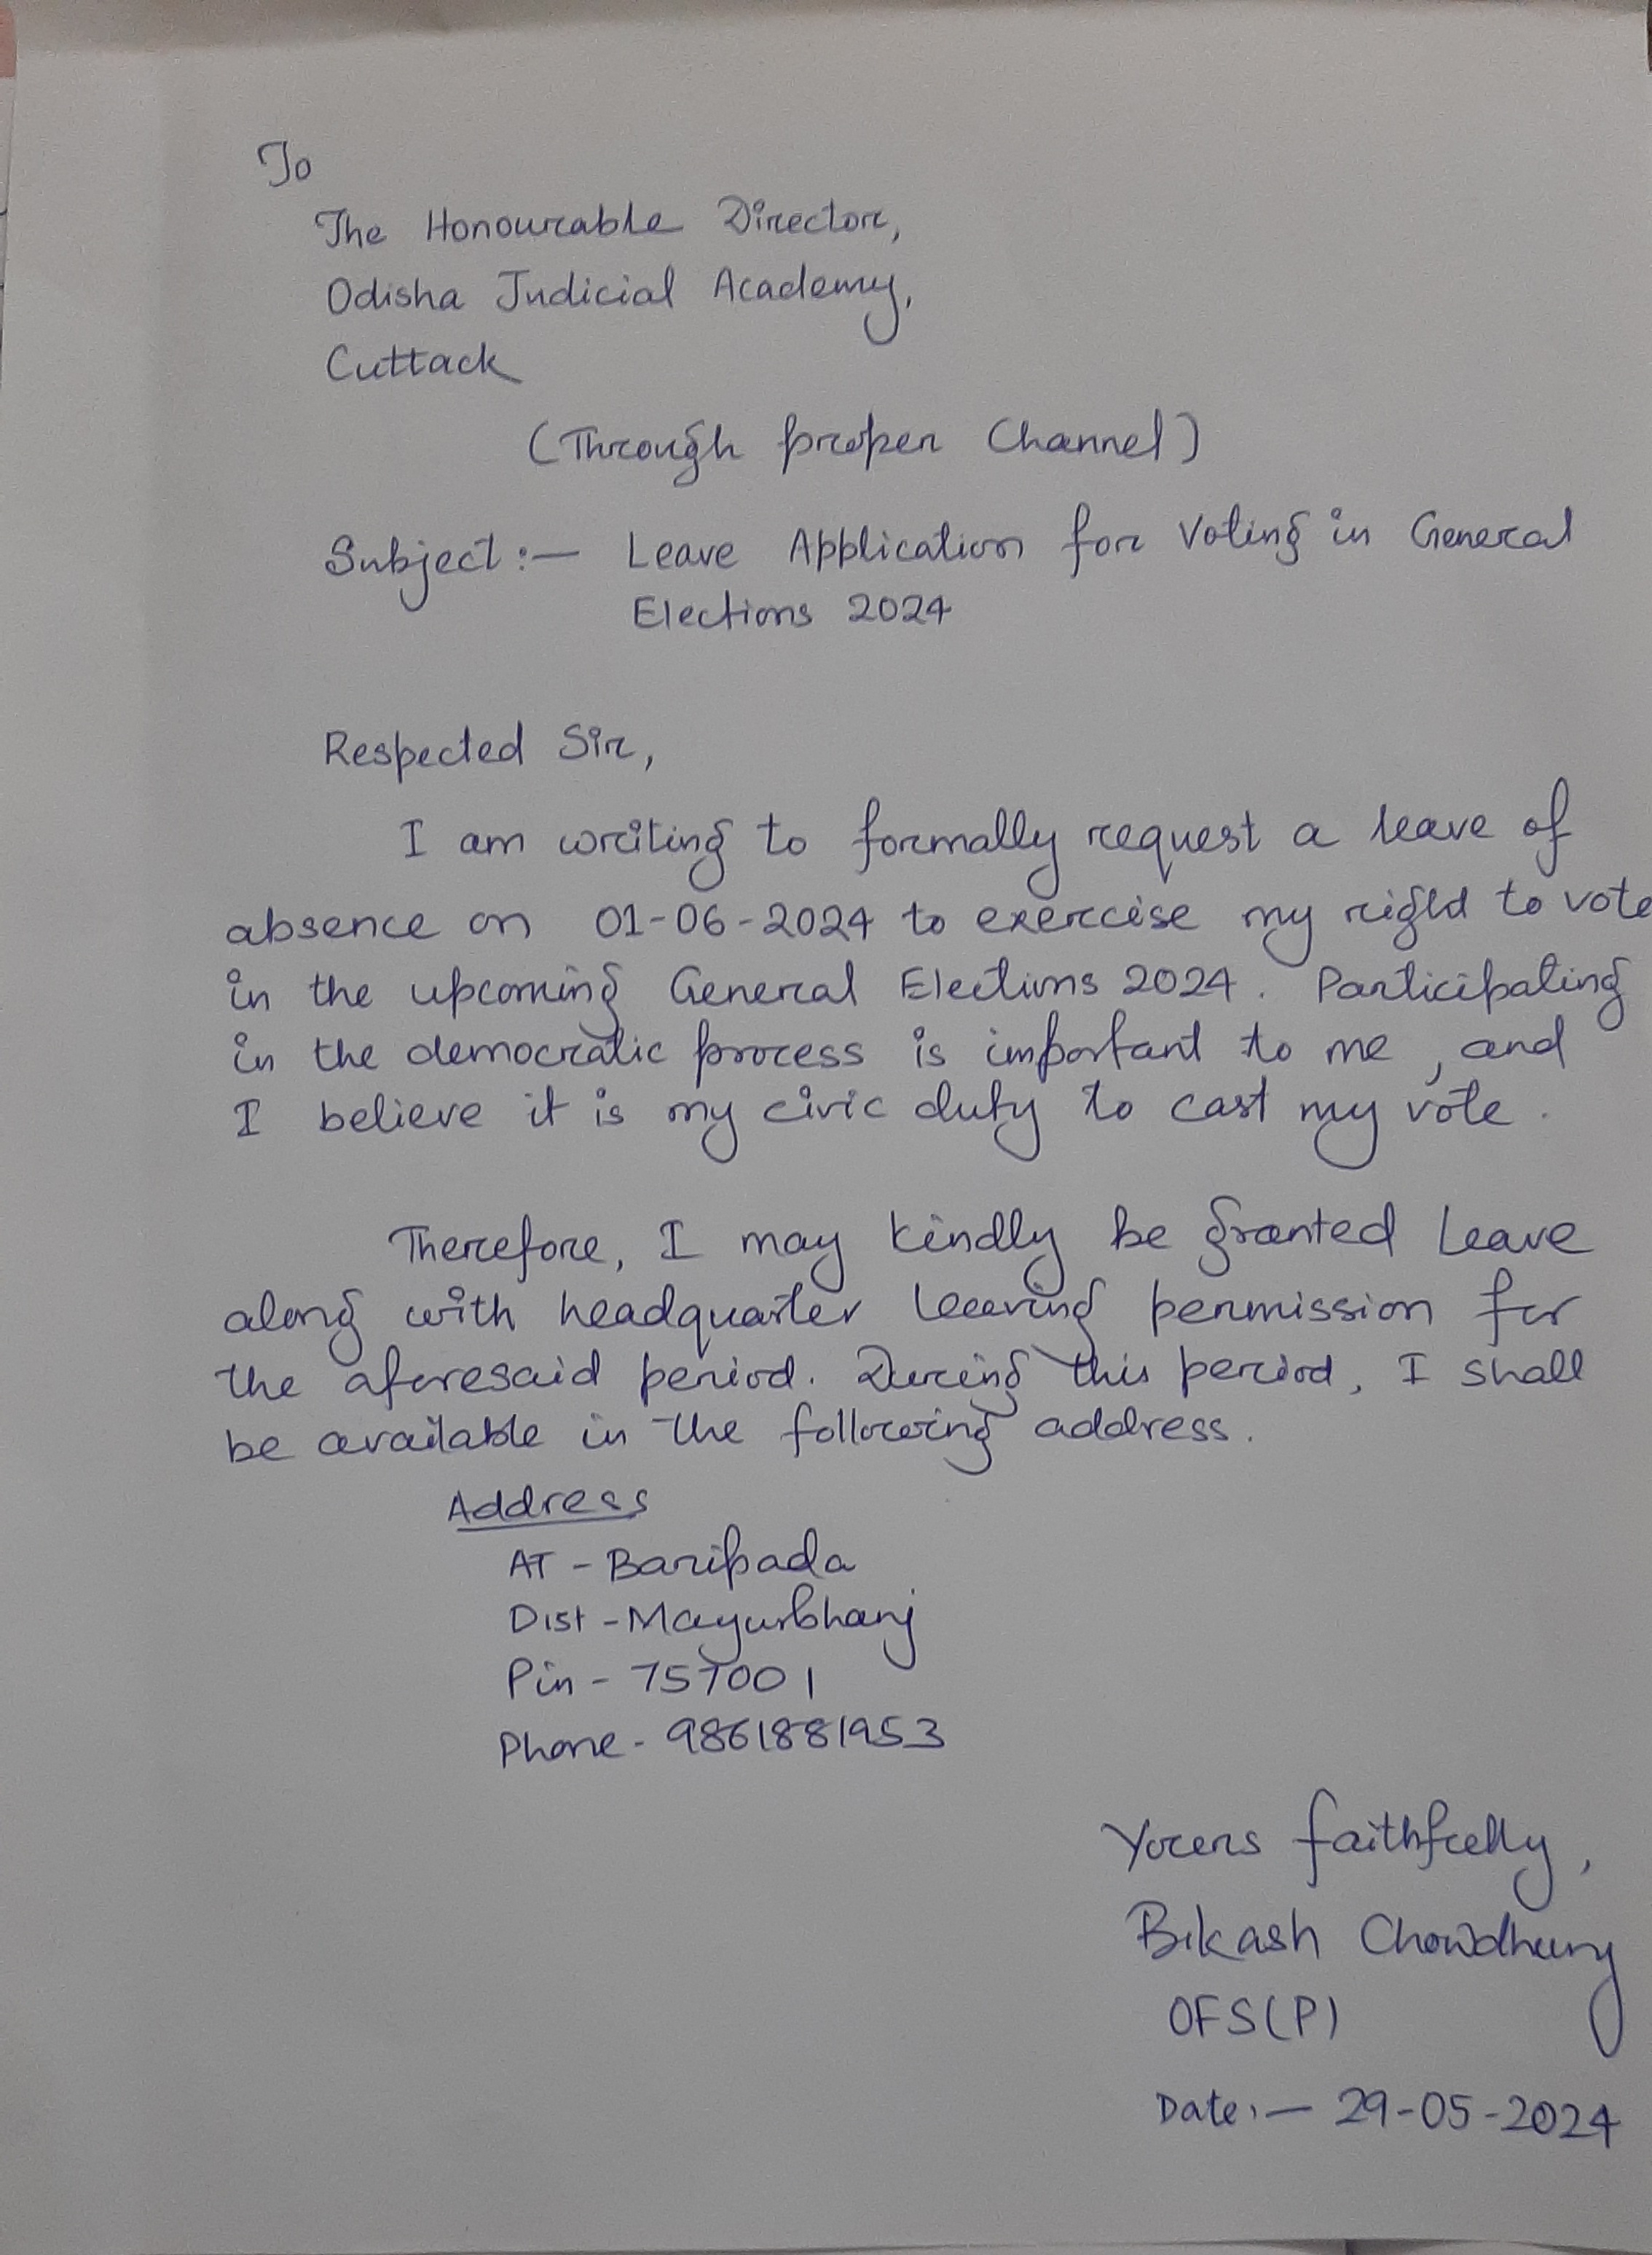 To
The Honourable Director,
Odisha Judicial Academy,
Cuttack
(Through proper Channel)
Subject:— Leave Application for Voting in General
Elections 2024
Respected Sir,
I am writing to formally request a leave of
absence on 01-06-2024 to exercise my right to vote
in the upcoming General Elections 2024. Participating
in the democratic process is important to me, and
I believe it is my civic duty to cast my vote.
Therefore, I may kindly be granted leave
along with headquarter leaving permission for
the aforesaid period. During this period, I shall
be available in the following address.
Address
AT - Baripada
Dist - Mayurbhanj
Pin - 757001
Phone - 9861881953
Yours faithfully,
Bikash Chowdhury
OFS(P)
Date:— 29-05-2024